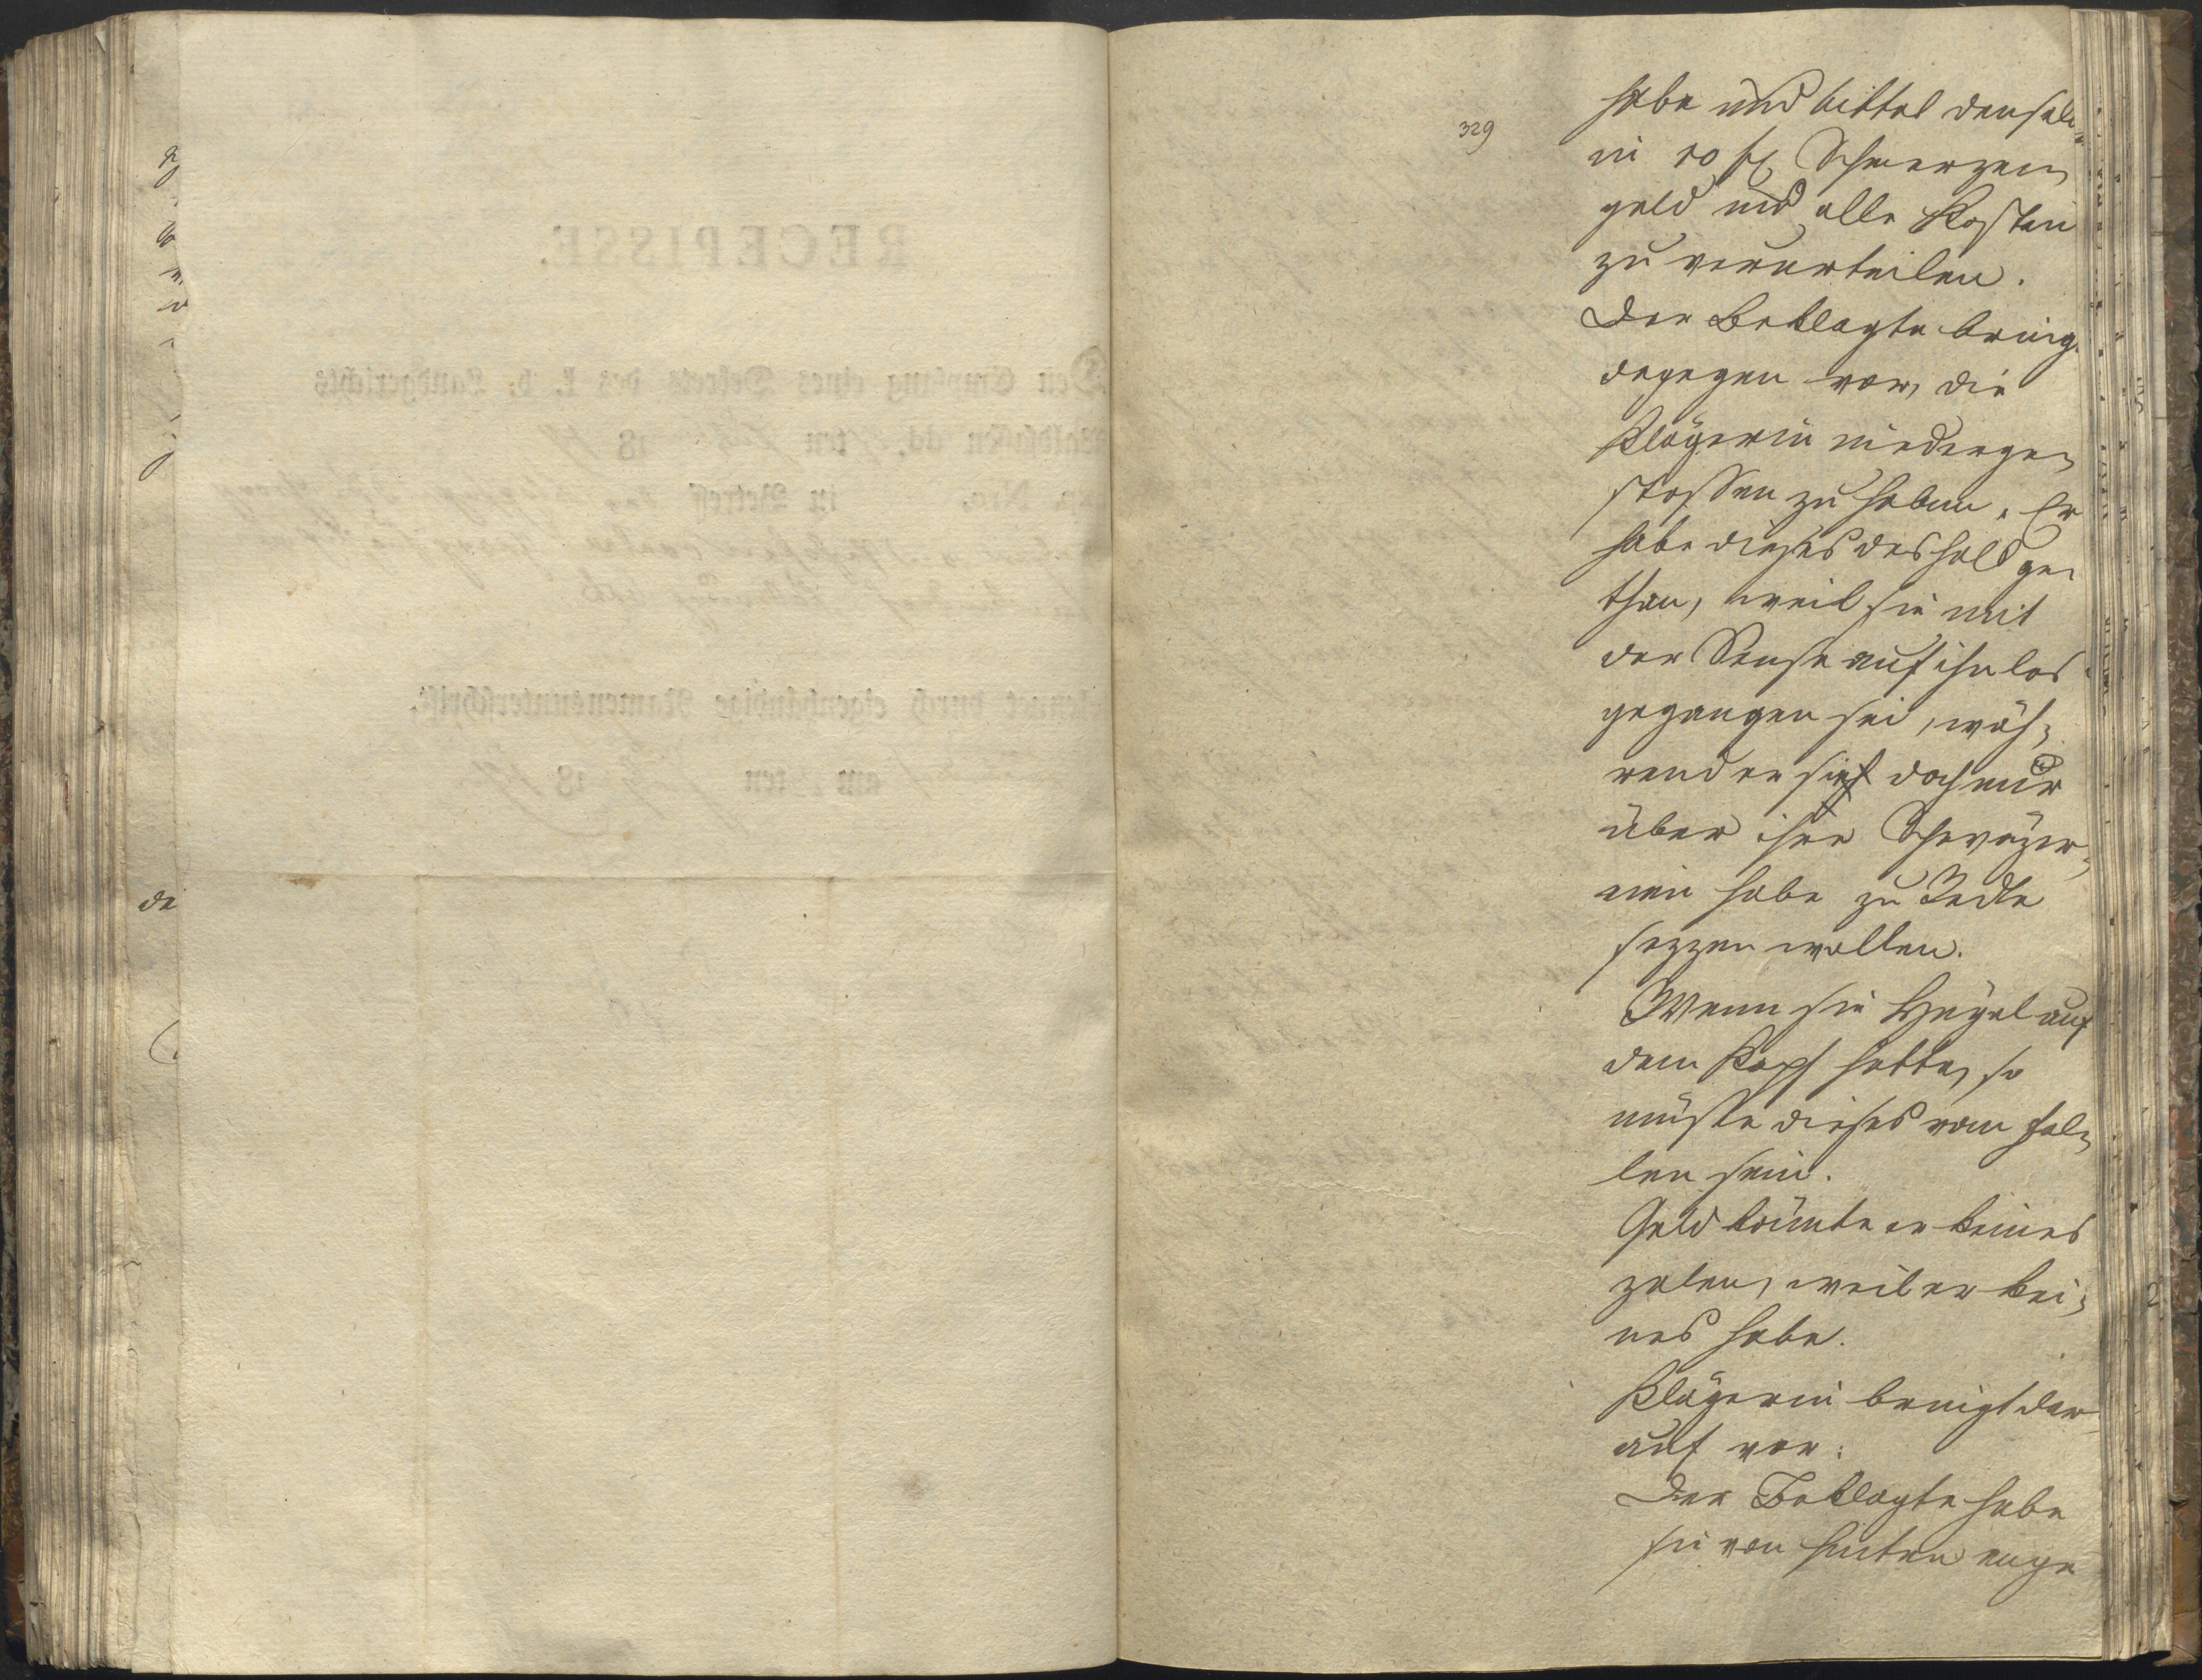 329
habe und bittet denselben
in 20 fl Schmerzen,
geld und alle Kosten
zu verurteilen.
Der Beklagte bringt
dagegen vor, die
Klägerin niederge,
stossen zu haben. Er
habe dieses deshalb ge,
than, weil sie mit
der Sense auf ihn los
gegangen sei, wäh,
rend er sich doch nur
über ihre
habe zu Rede
sezzen wollen.
Wenn sie auf
dem Kopf hatte, so
müßte dieses vom Fal,
len sein.
Geld könnte er keines
zalen, weil er kei,
nes habe.
Klägerin bringt dar
auf vor:
Der Beklagte habe
sie von hinten ange